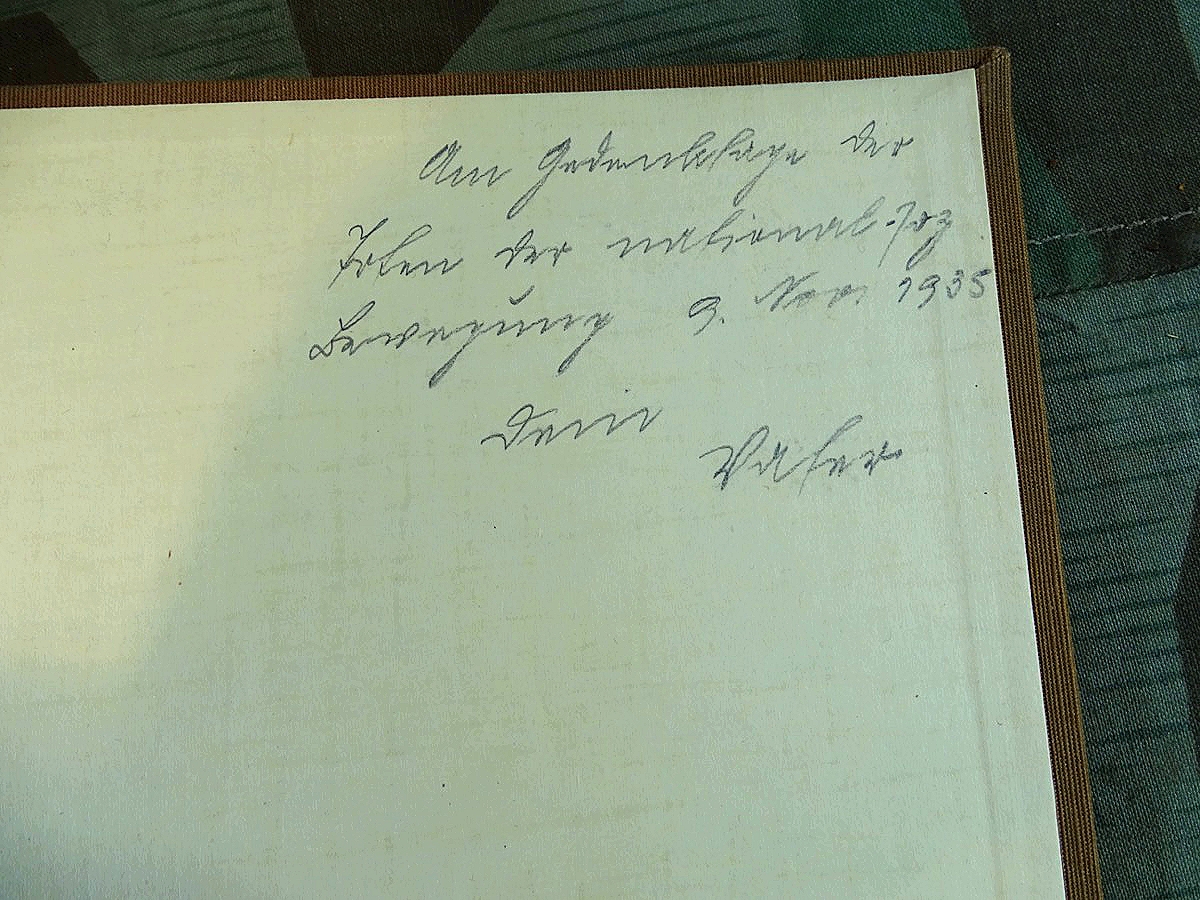 Am Gedenktage der
Toten der national-soz
Bewegung 9. Nov. 1935
Dein
Vater